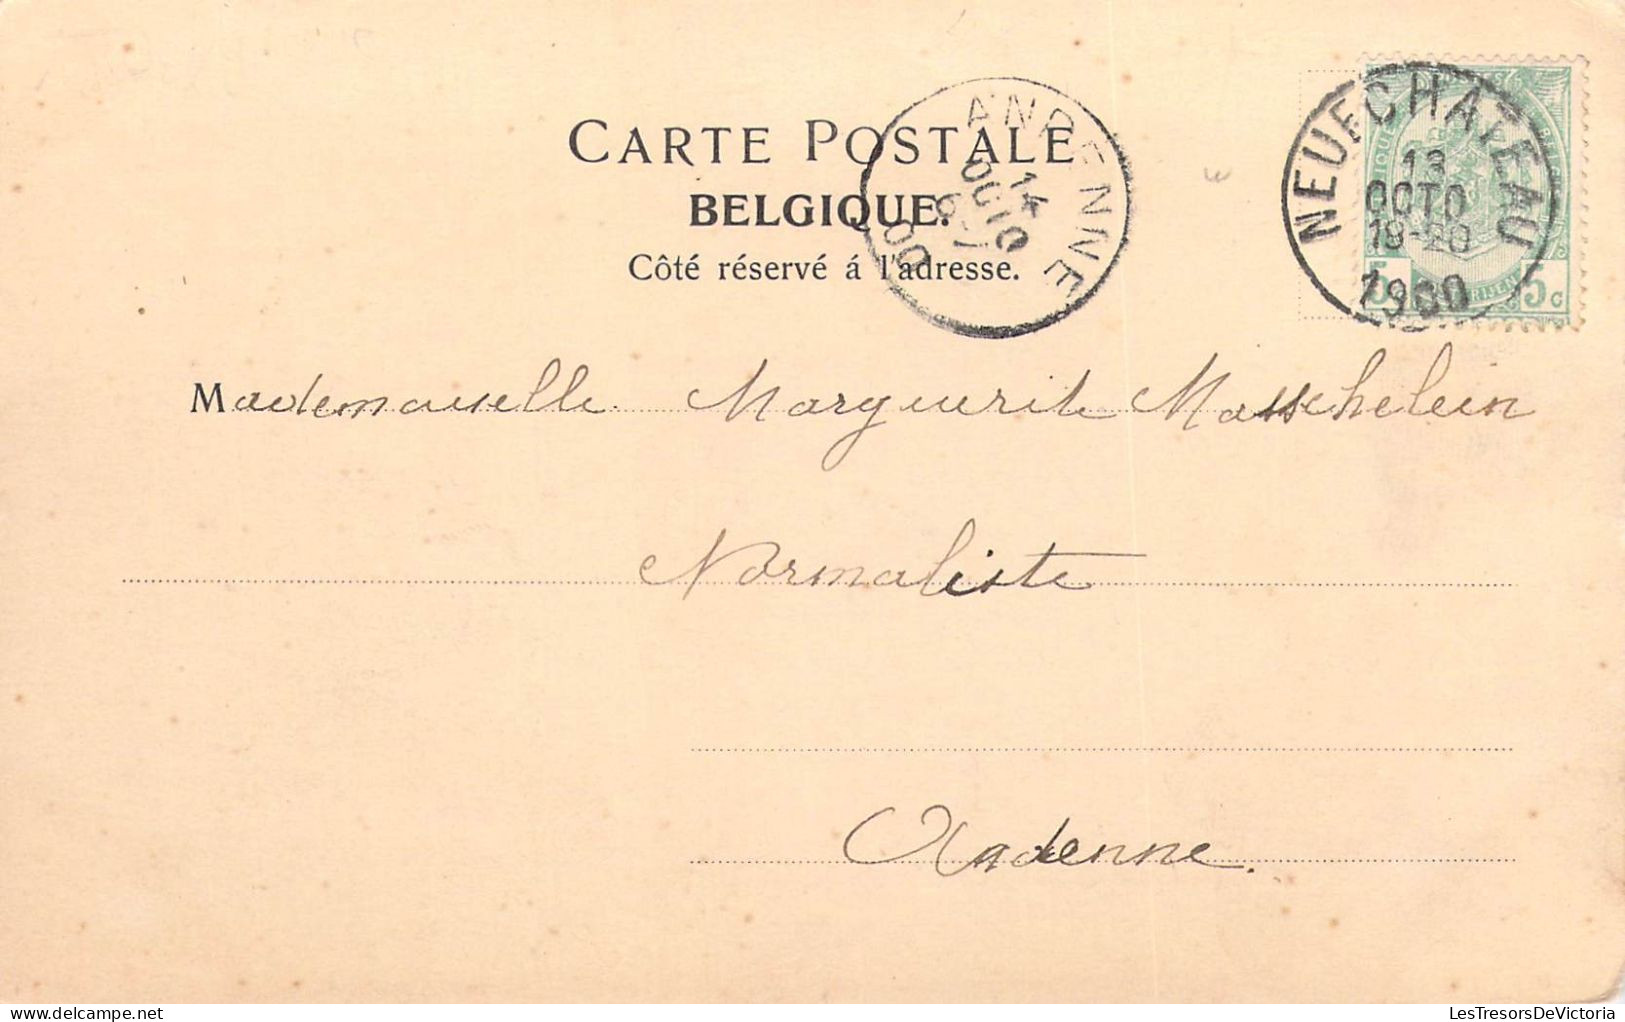 CARTE POSTALE
BELGIQUE.
Côté réservé á l'adresse.
ANDENNE
14
OCTO
6-7
00
NEUFCHATEAU
13
OCTO
19-20
1900
5 5c
Mademoiselle Marguerite Masschelein
Normaliste
Andenne.
LesTresorsDeVictoria